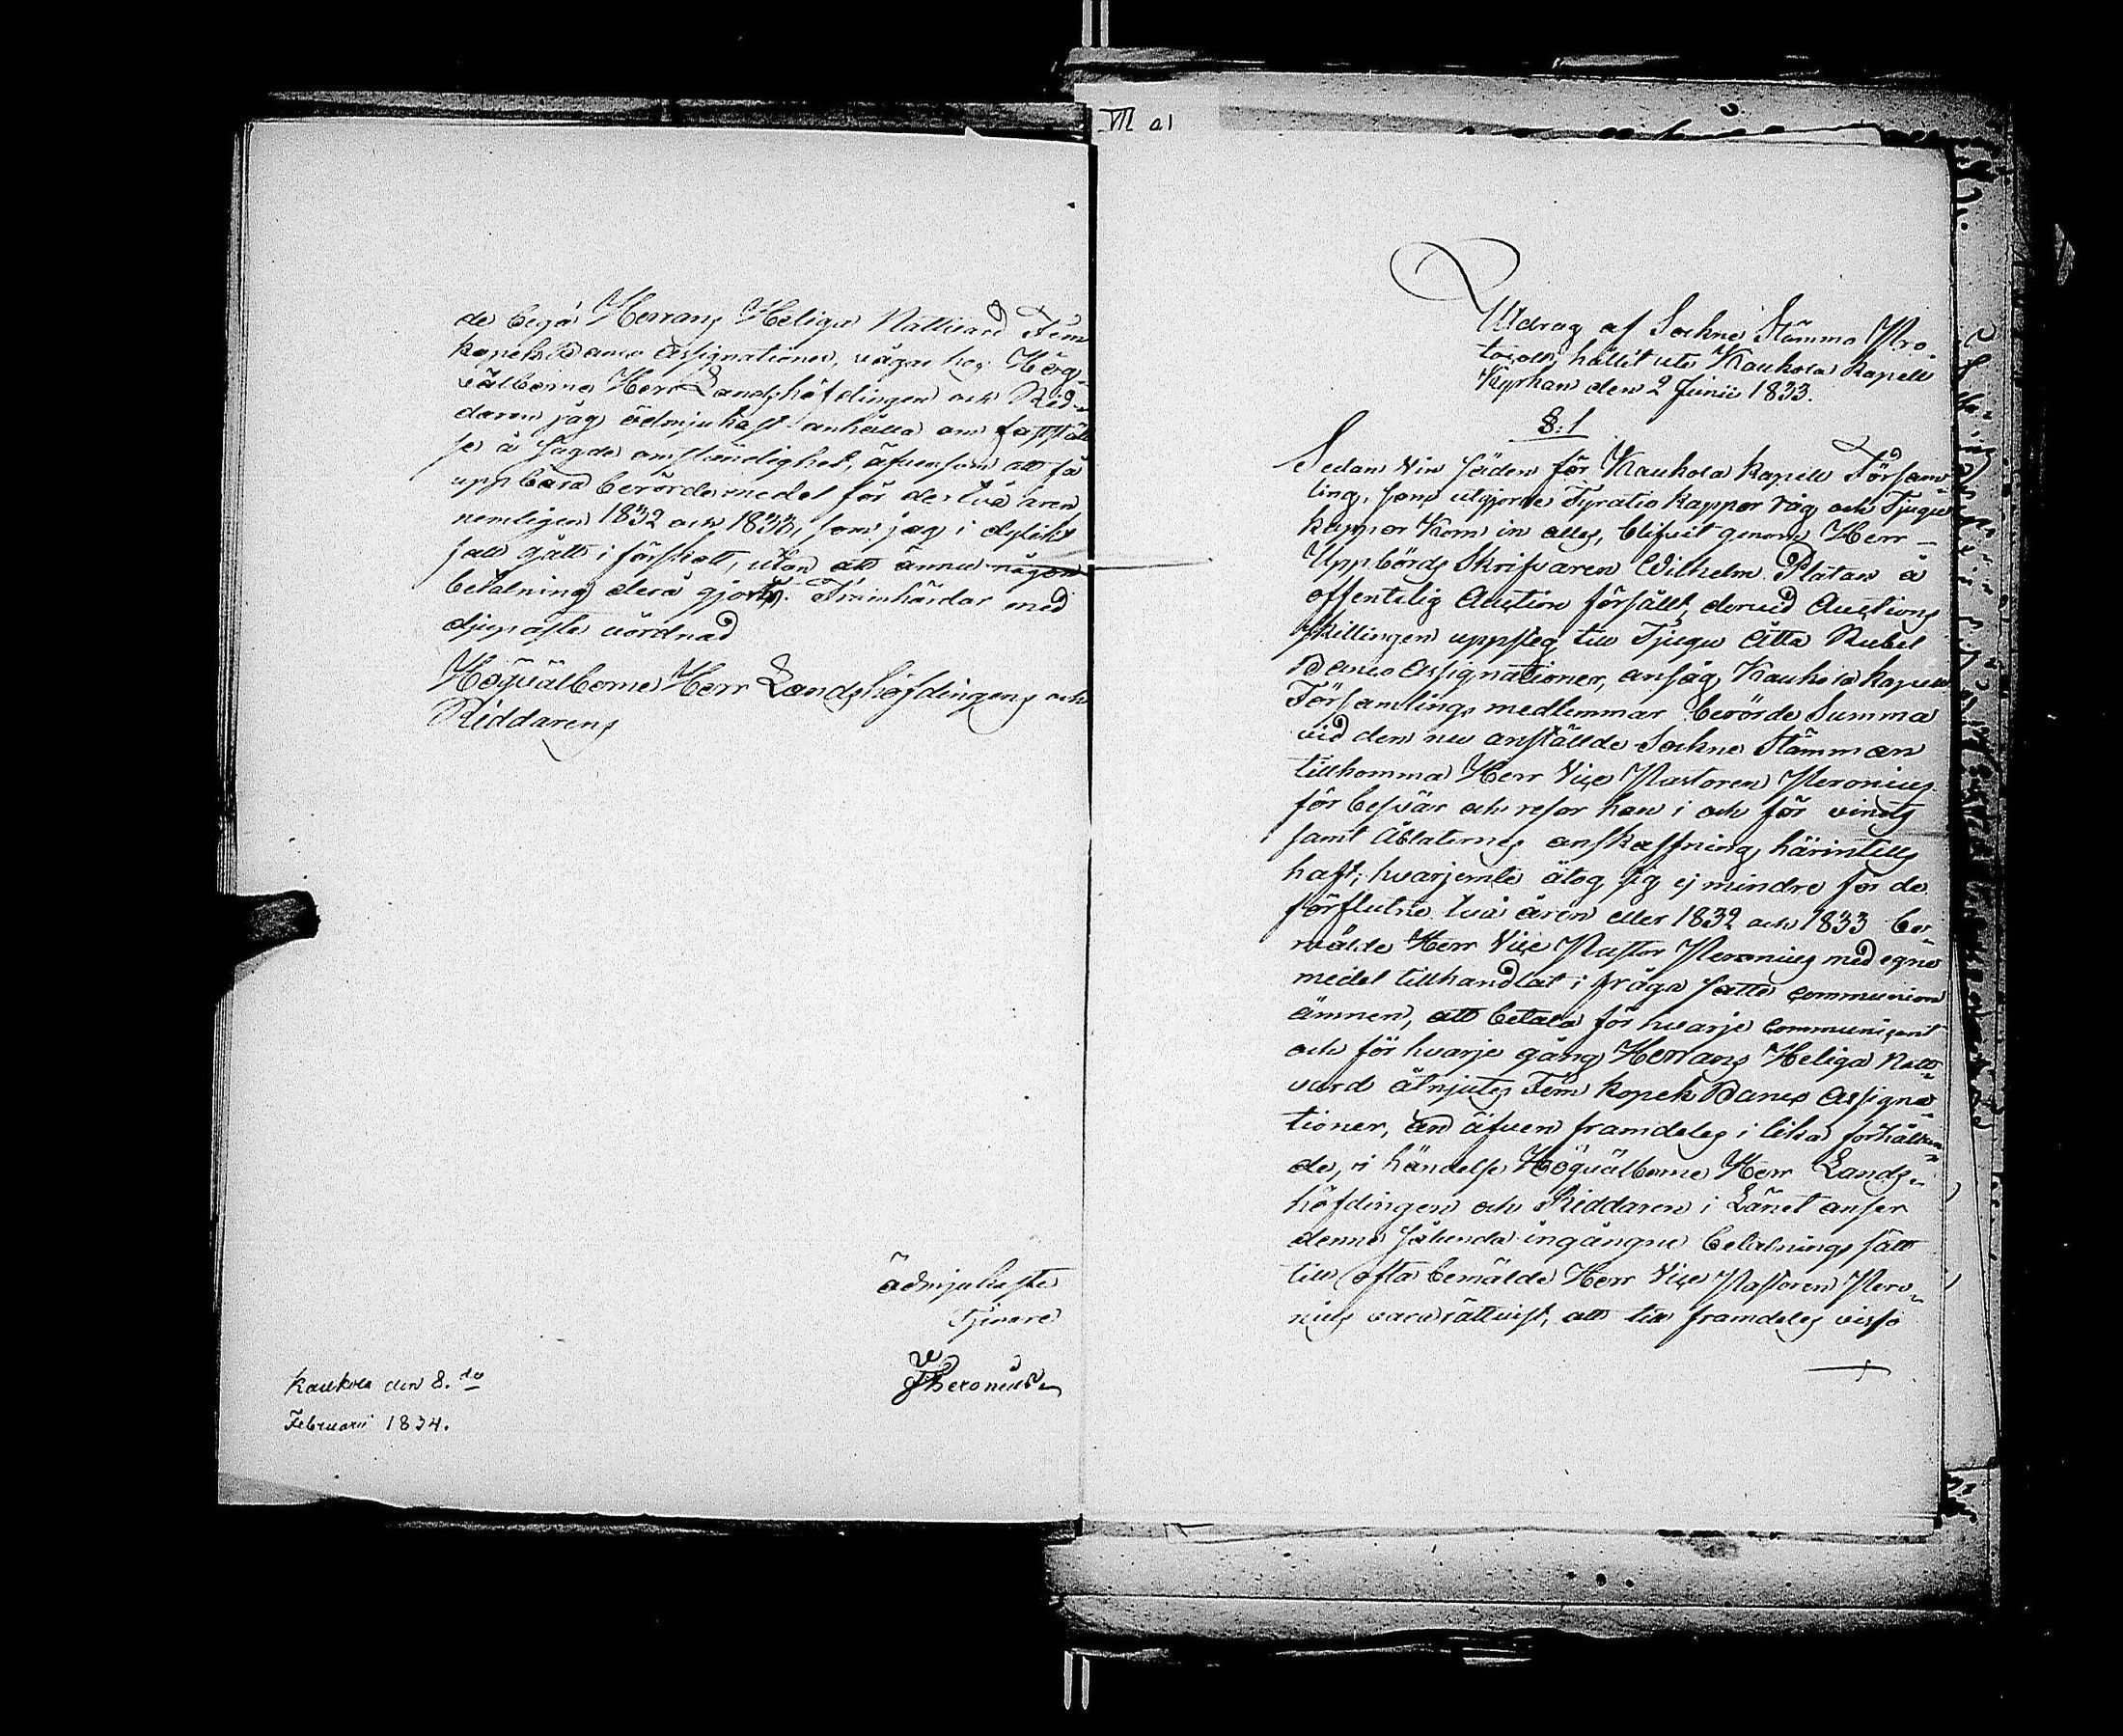 de begå Herrans Heliga Nattvard Fem
kopek Banco Assignationer, vågar hos Hög-
välborne Herr Landshöfdingen och Rid-
daren jag ödmjukast anhålla om faststäl
se å sagde omständighet, äfvensom att få
uppbära berörde medel för de två åren
nemligen 1832 och 1833, som jag i dylikt
fall gått i förskott, utan att ännu någon
betalning derå gjorts. Framhärdar med
djupaste vördnad
Högvälborne Herr Landshöfdingens och
Riddarens
ödmjukaste
tjenare
Peronius
Kaukola den 8.de
Februarii 1834.
VII a1
Utdrag af Sockne Stämmo Pro-
tocoll, hållit uti Kaukola kapell
Kyrkan den 2 Junii 1833.
§:1
Sedan Vin säden för Kaukola kapell Försam-
ling, som utgjorde Fyratio kappor råg och Tjugu
kappor Korn in alles, blifvit genom Herr
Uppbörds Skrifvaren Wilhelm Platan å
offentelig Auction försållt, dervid Auctions
skillingen uppsteg till Tjugu Åtta Rubel
Banco Assignationer, ansåg Kaukola kapell
Församlings medlemmar berörde Summa
vid den nu anställde Sockne Stämman
tillkomma Herr Vice Pastoren Peronius
för besvär och resor han i och för vinets
samt Åblaternes anskaffning härintills
haft; hvarjemte åtog sig ej mindre för de
förflutne två åren eller 1832 och 1833 be-
mälde Herr Vice Pastor Peronius med egne
medel tillhandlat i fråga satte Communion
ämnen, att betala för hvarje Communicant
och för hvarje gång Herrans Heliga Natt-
vard åtnjutes Fem kopek Banco Assigna-
tioner, än äfven framdeles i lika förhållan-
de, i händelse Högvälborne Herr Lands-
höfdingen och Riddaren i Länet anser
denne sålunda ingångne betalnings sätt
till ofta bemälde Herr Vice Pastoren Pero-
nius vara rättvist, att till framdeles visso